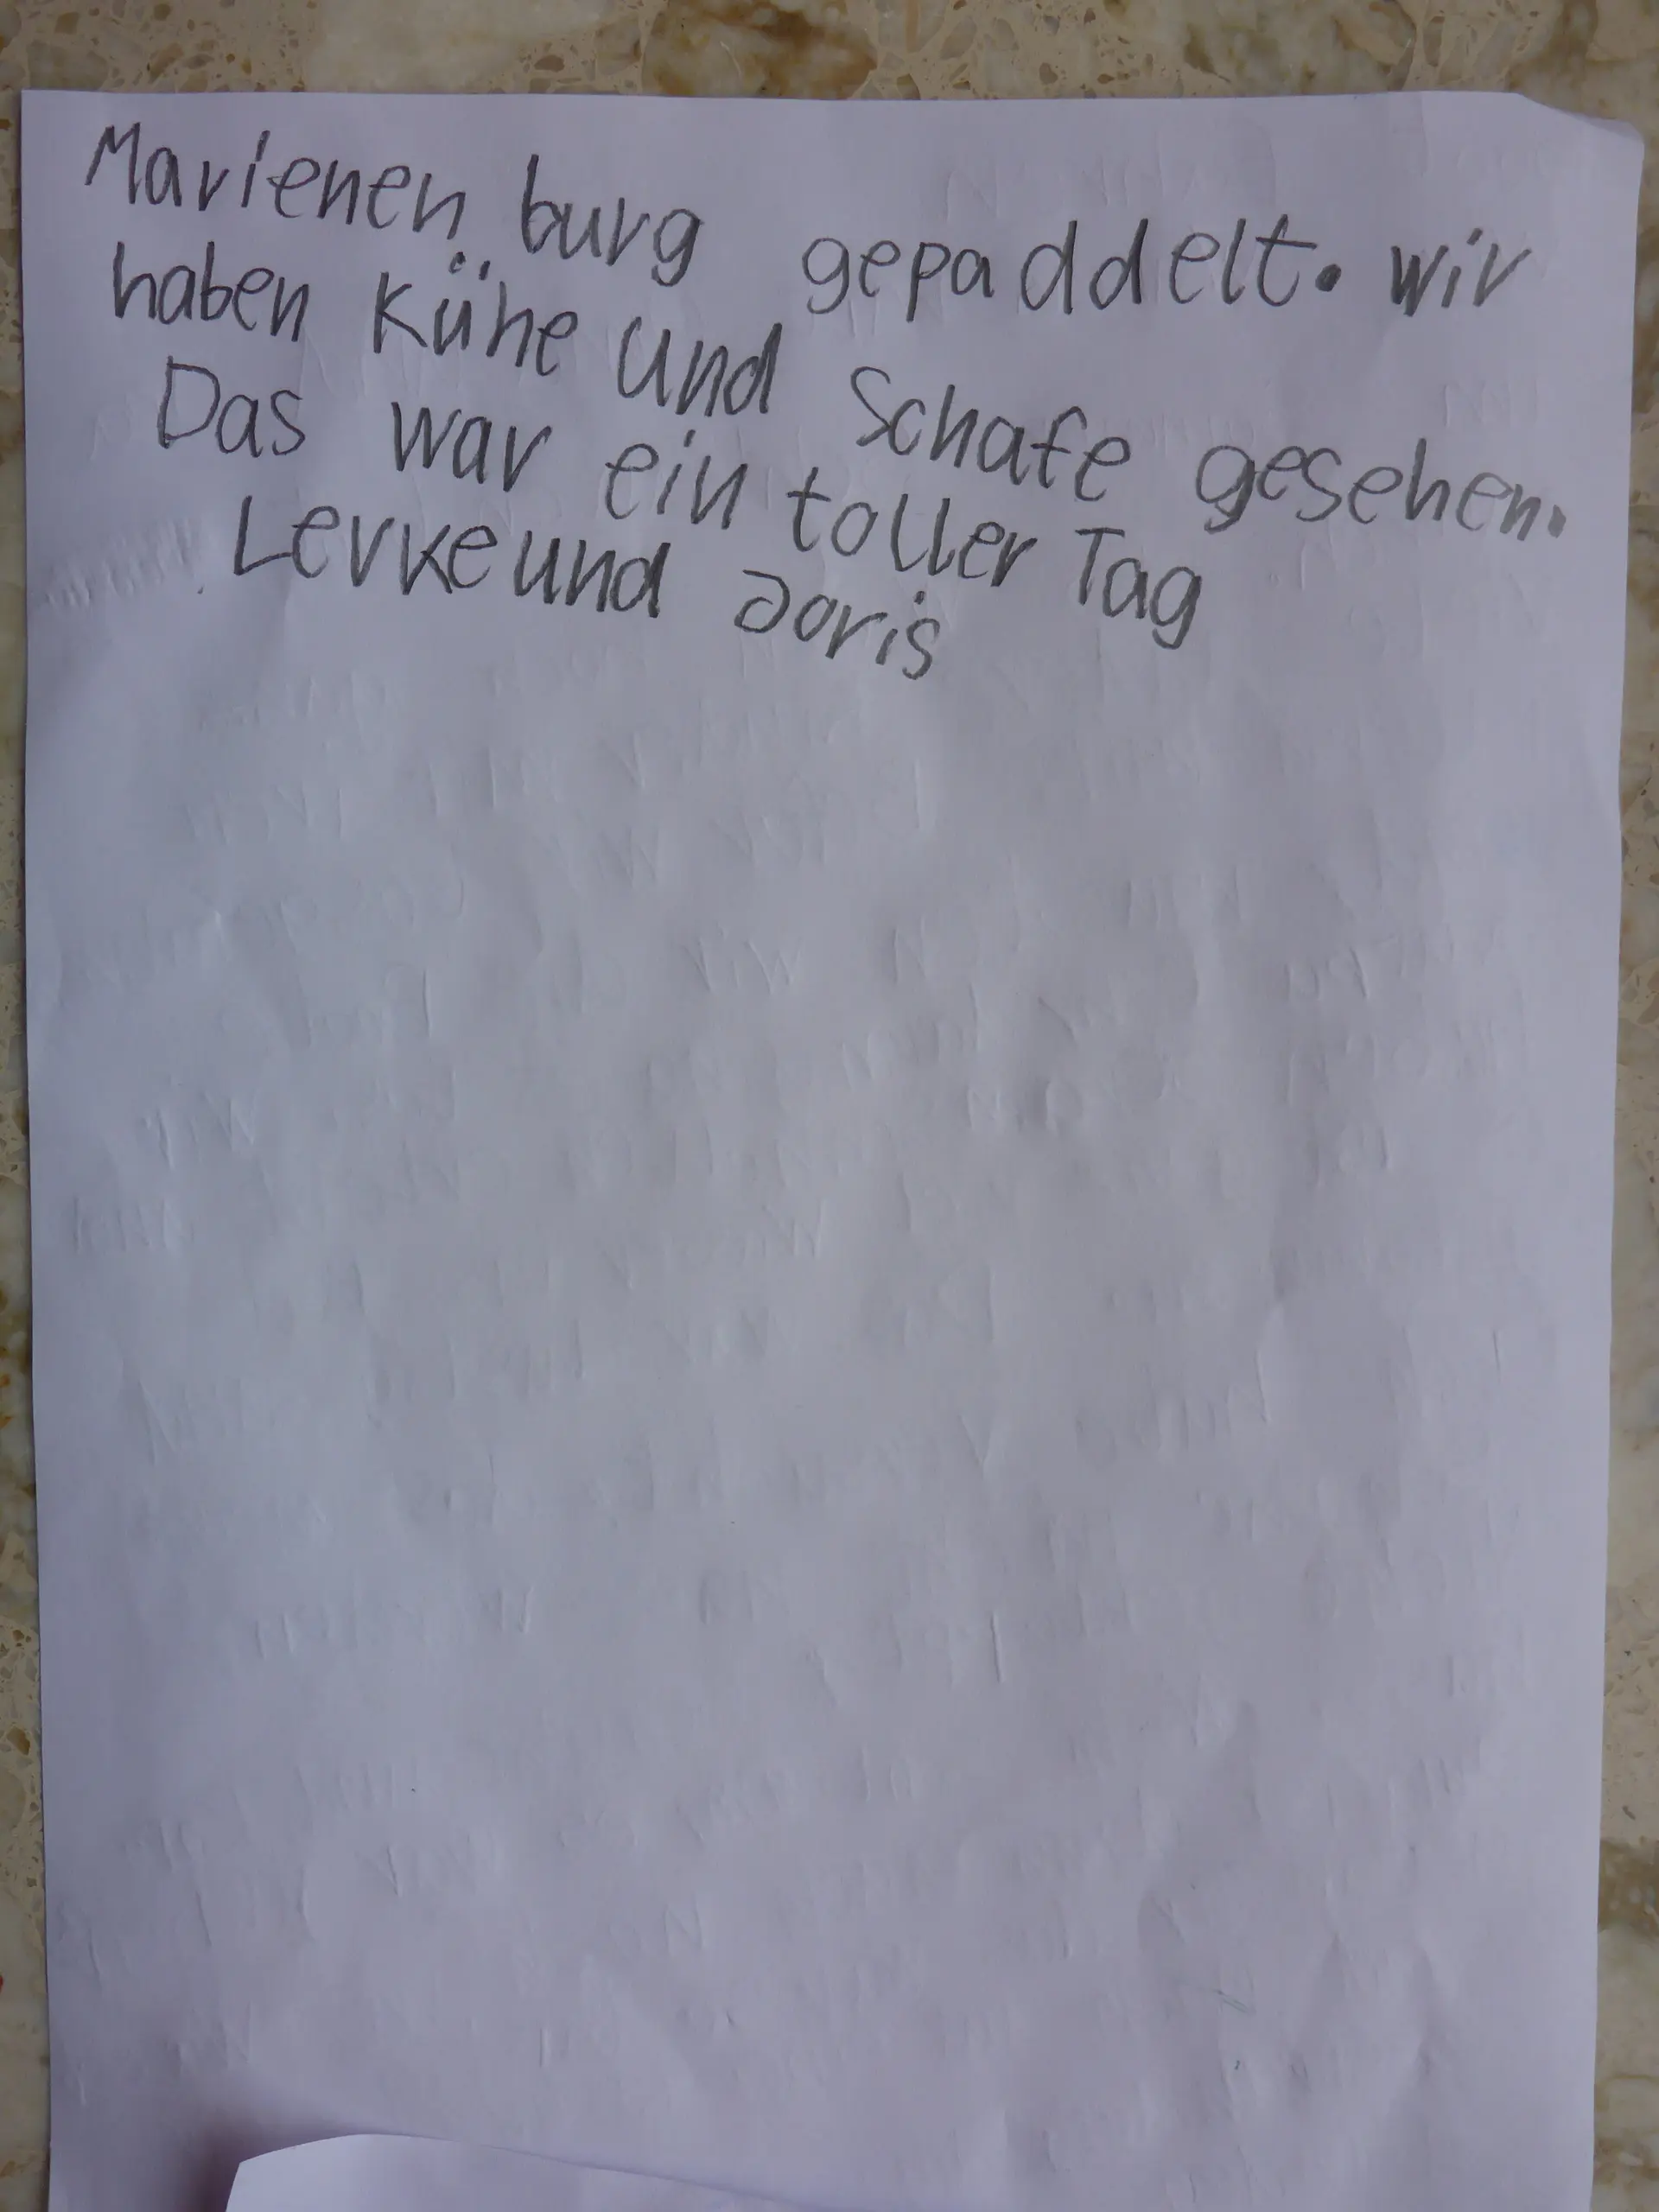 Marienen burg gepaddelt. wir
haben Kühe und Schafe gesehen.
Das war ein toller Tag
Levke und Joris